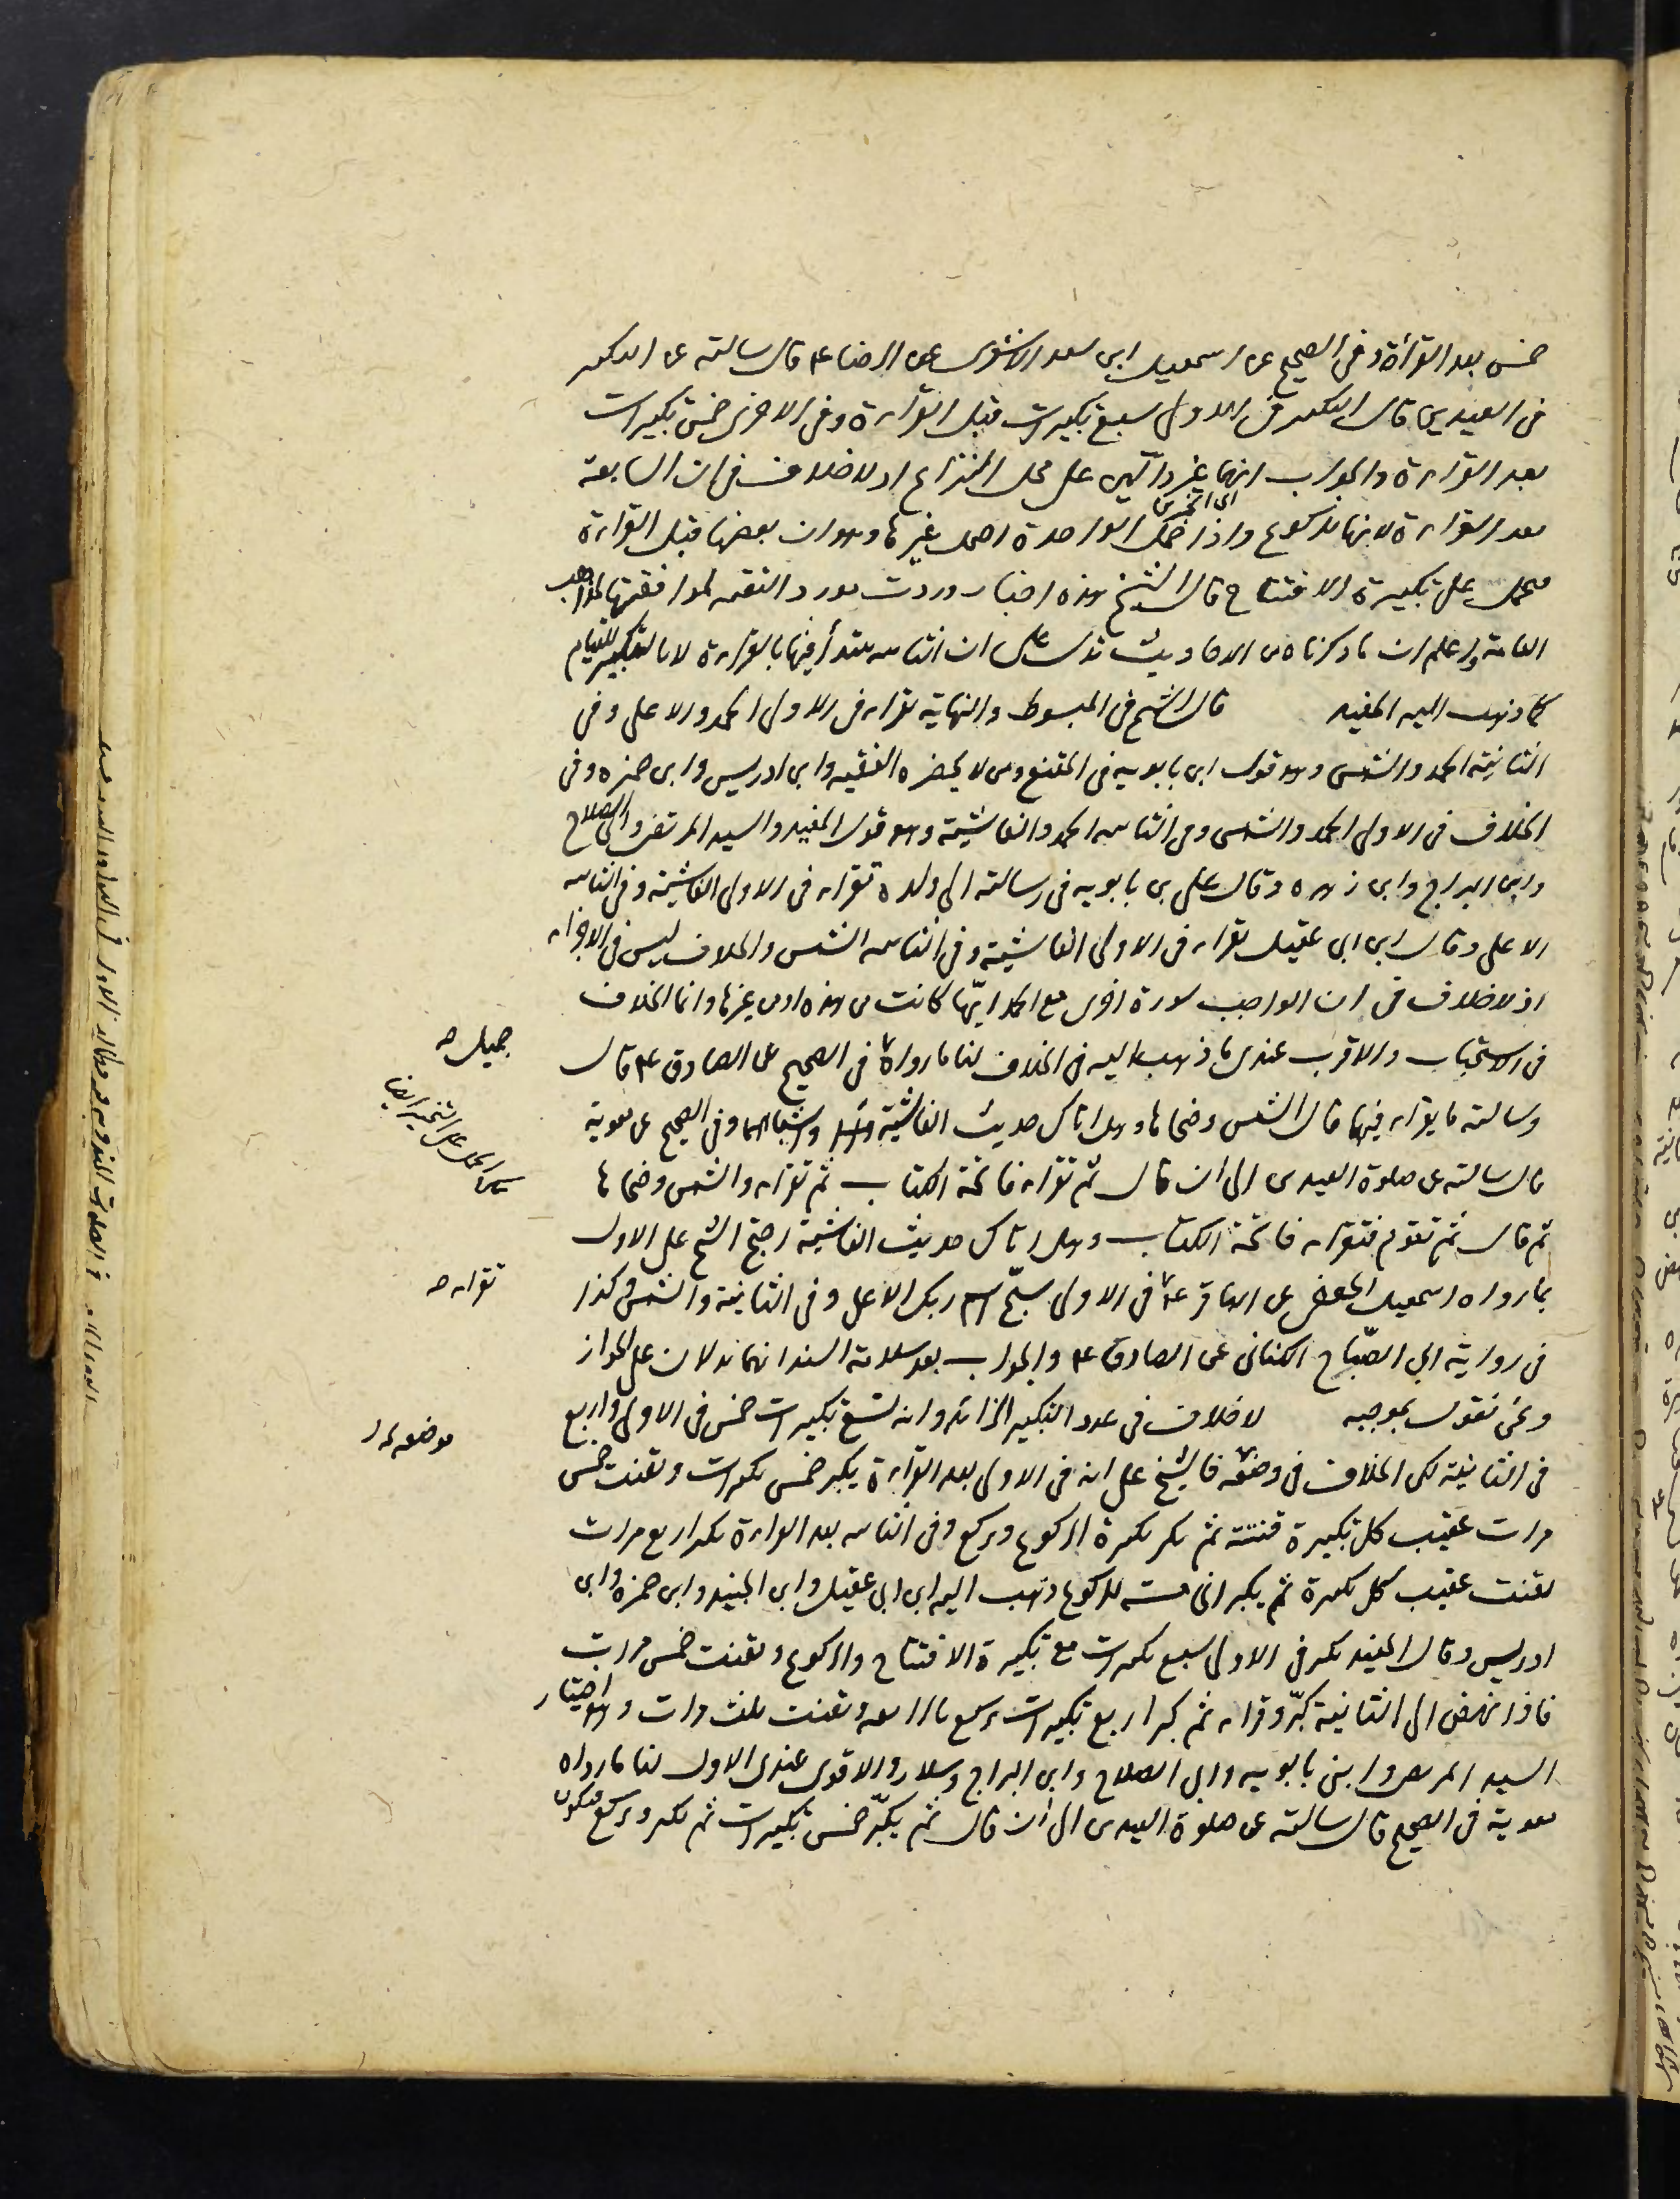 خمس بعد القراءة وفى الصحيح عن اسمعيل ابن سعد الاشعرى عن الرضا ع قال سالته عن التكبير
فى العيدين قال التكبير فى الاولى سبع تكبيرات قبل القراءة وفى الاخرى خمس تكبيرات
بعد القراءة والجواب انهما غير دالين على محل النزاع اذ لا خلاف فى ان السابعة
بعد القراءة لانها للركوع واذا احتمل الواحدة احتمل غيرها وهو ان بعضها قبل القراءة
فيحمل على تكبيرة الافتتاح قال الشيخ هذه اخبار وردت مورد التقية لموافقتها لمذاهب
العامة واعلم ان ما ذكرناه من الاحاديث تدل على ان الثانيه يبتدأ فيها بالقراءة لا بالتكبير للقيام
كما ذهب اليه المفيد قال الشيخ فى المبسوط والنهاية يقراء فى الاولى الحمد والاعلى وفى
الثانية الحمد والشمس وهو قول ابن بابويه فى المقنع ومن لا يحضره الفقيه وابن ادريس وابن حمزه وفى
الخلاف فى الاولى الحمد والشمس وفى الثانيه الحمد والغاشية وهو قول المفيد والسيد المرتضى وابى الصلاح
وابن البراج وابن زهره وقال على بن بابويه فى رسالته الى ولده تقراء فى الاولى الغاشية وفى الثانيه
الاعلى وقال ابن ابى عقيل يقراء فى الاولى الغاشية وفى الثانيه الشمس والخلاف ليس فى الاجزاء
اذ لا خلاف فى ان الواجب سورة اخرى مع الحمد ايّها كانت من هذه او من غيرها وانما الخلاف
فى الاستحباب والاقرب عندى ما ذهب اليه فى الخلاف لنا ما رواه فى الصحيح عن الصادق ع قال
جميل صح
وسالته ما يقراء فيهما قال الشمس وضحاها وهل اتاك حديث الغاشية واشباهها وفى الصحيح عن معوية
قال سالته عن صلوة العيدين الى ان قال ثم تقراء فاتحة الكتاب ثم تقراء والشمس وضحاها
ثم قال ثم تقوم فتقراء فاتحة الكتاب وهل اتاك حديث الغاشية احتج الشيخ على الاول
بما رواه اسمعيل الجعفى عن الباقر ع فى الاولى سبّح اسم ربك الاعلى وفى الثانية والشمس وكذا
تقراء صح
فى رواية ابى الصّباح الكنانى عن الصادق ع والجواب بعد سلامة السند انهما يدلان على الجواز
ونحن نقول بموجبه لا خلاف فى عدد التكبير الزائد وانه تسع تكبيرات خمس فى الاولى واربع
فى الثانية لكن الخلاف فى وضعه فالشيخ على انه فى الاولى بعد القراءة يكبر خمس تكبيرات ويقنت خمس
مرات عقيب كل تكبيرة قنتة ثم يكبر تكبيرة الركوع ويركع وفى الثانيه بعد القراءة يكبر اربع مرات
يقنت عقيب كل تكبيرة ثم يكبر الخامسه للركوع وذهب اليه ابن ابى عقيل وابن الجنيد وابن حمزه وابن
ادريس وقال المفيد يكبر فى الاولى سبع تكبيرات مع تكبيرة الافتتاح والركوع ويقنت خمس مرات
فاذا نهض الى الثانية كبّر وقراء ثم كبر اربع تكبيرات يركع بالرابعه ويقنت ثلث مرات وهو اختيار
السيد المرتضى وابنى بابويه وابى الصلاح وابن البراج وسلار والاقوى عندى الاول لنا ما رواه
معوية فى الصحيح قال سالته عن صلوة العيدين الى ان قال ثم يكبّر خمس تكبيرات ثم يكبر ويركع فيكون